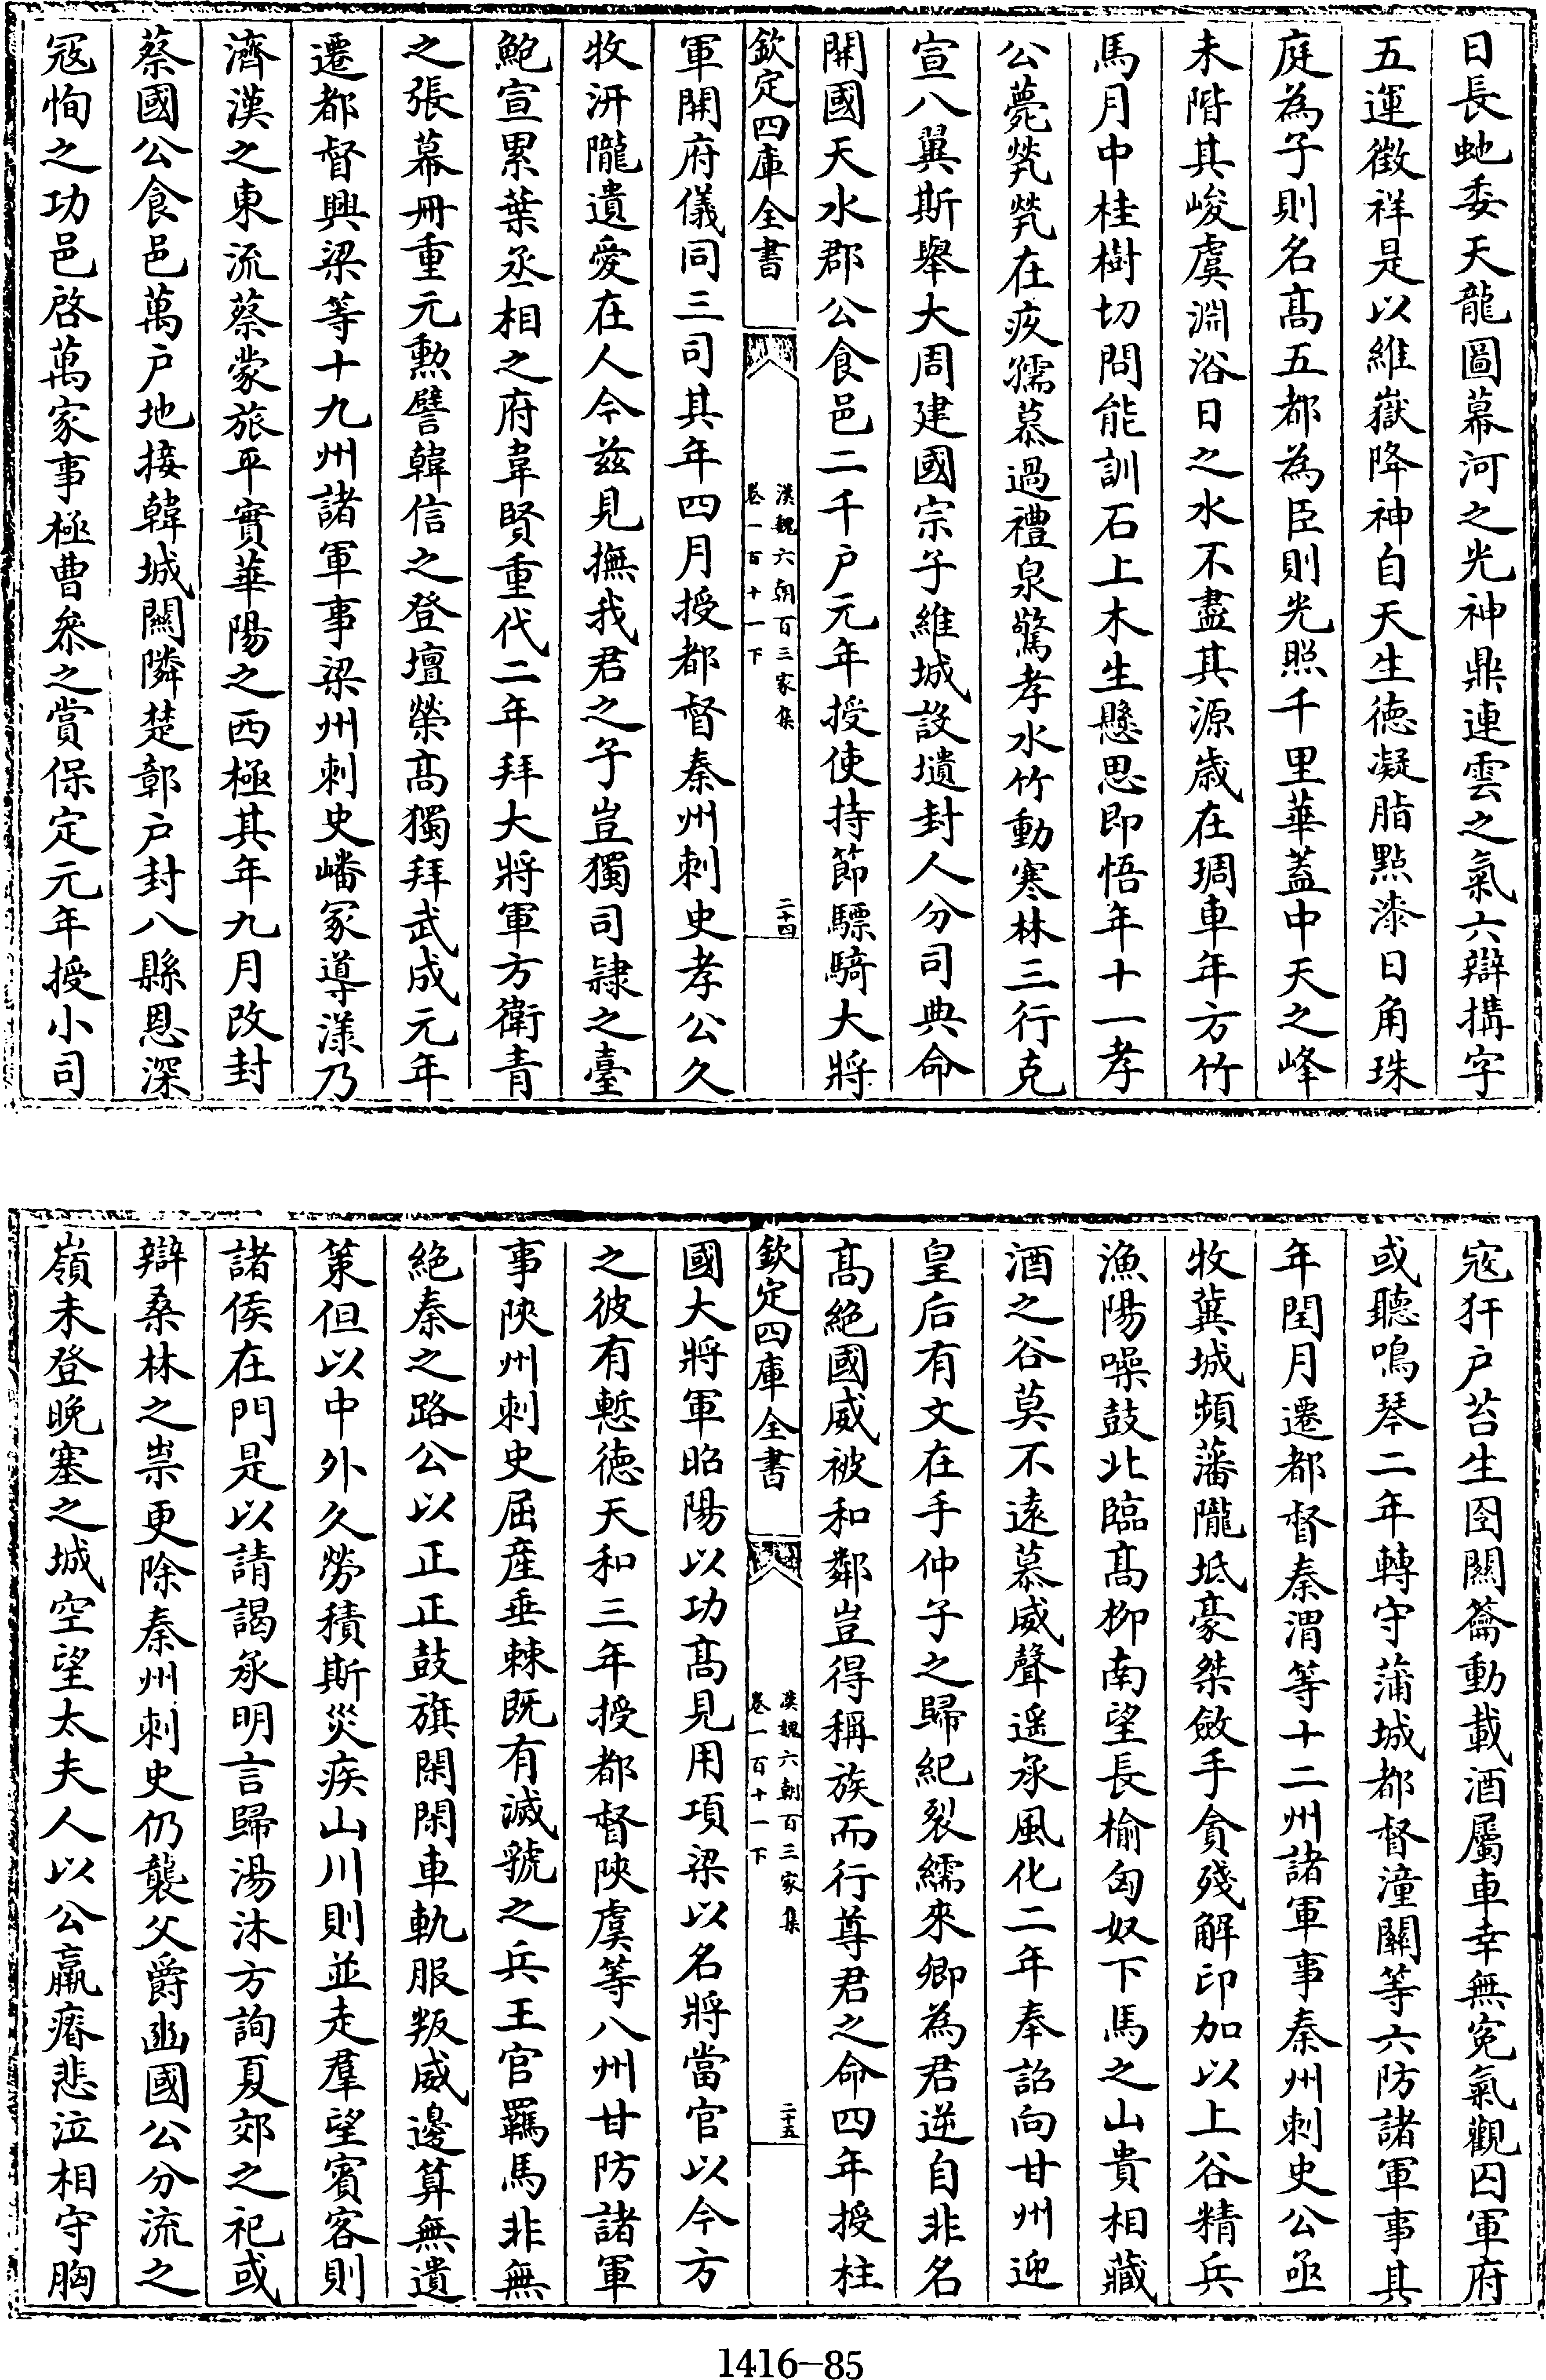 日長虵委天龍圖幕河之光神鼎連雲之氣六辯搆字
五運徵祥是以維嶽降神自天生徳凝脂點漆日角珠
庭為子則名髙五都為臣則光照千里華蓋中天之峰
未階其峻虞淵浴日之水不盡其源歳在琱車年方竹
馬月中桂樹切問能訓石上木生懸思即悟年十一孝
公薨煢煢在疚孺慕過禮泉驚孝水竹動寒林三行克
宣八翼斯舉大周建國宗子維城設壝封人分司典命
開國天水郡公食邑二千户元年授使持節驃騎大將
欽定四庫全書
漢魏六朝百三家集
卷一百十一下
二十四
軍開府儀同三司其年四月授都督秦州刺史孝公久
牧汧隴遺愛在人今兹見撫我君之子豈獨司隷之臺
鮑宣累葉丞相之府韋賢重代二年拜大將軍方衛青
之張幕冊重元勲譬韓信之登壇榮髙獨拜武成元年
遷都督興梁等十九州諸軍事梁州刺史嶓冢導漾乃
濟漢之東流蔡蒙旅平實華陽之西極其年九月改封
蔡國公食邑萬户地接韓城闗隣楚鄣户封八縣恩深
冦恂之功邑啓萬家事極曹叅之賞保定元年授小司
寇犴户苔生囹闗籥動載酒屬車幸無寃氣觀囚軍府
或聽鳴琴二年轉守蒲城都督潼關等六防諸軍事其
年閏月遷都督秦渭等十二州諸軍事秦州刺史公亟
牧冀城頻藩隴坻豪桀斂手貪殘解印加以上谷精兵
漁陽噪鼓北臨髙柳南望長榆匈奴下馬之山貴相藏
酒之谷莫不逺慕威聲遥承風化二年奉詔向甘州迎
皇后有文在手仲子之歸紀裂繻來卿為君逆自非名
髙絶國威被和鄰豈得稱族而行尊君之命四年授柱
欽定四庫全書
漢魏六朝百三家集
卷一百十一下
二十五
國大將軍昭陽以功髙見用項梁以名將當官以今方
之彼有慙徳天和三年授都督陜虞等八州甘防諸軍
事陜州刺史屈産垂棘既有滅虢之兵王官羈馬非無
絶秦之路公以正正鼓旗閑閑車軌服叛威邊算無遺
策但以中外久勞積斯災疾山川則並走羣望賓客則
諸侯在門是以請謁承明言歸湯沐方詢夏郊之祀或
辯桑林之祟更除秦州刺史仍襲父爵豳國公分流之
嶺未登晚塞之城空望太夫人以公羸瘠悲泣相守胸
1416-85